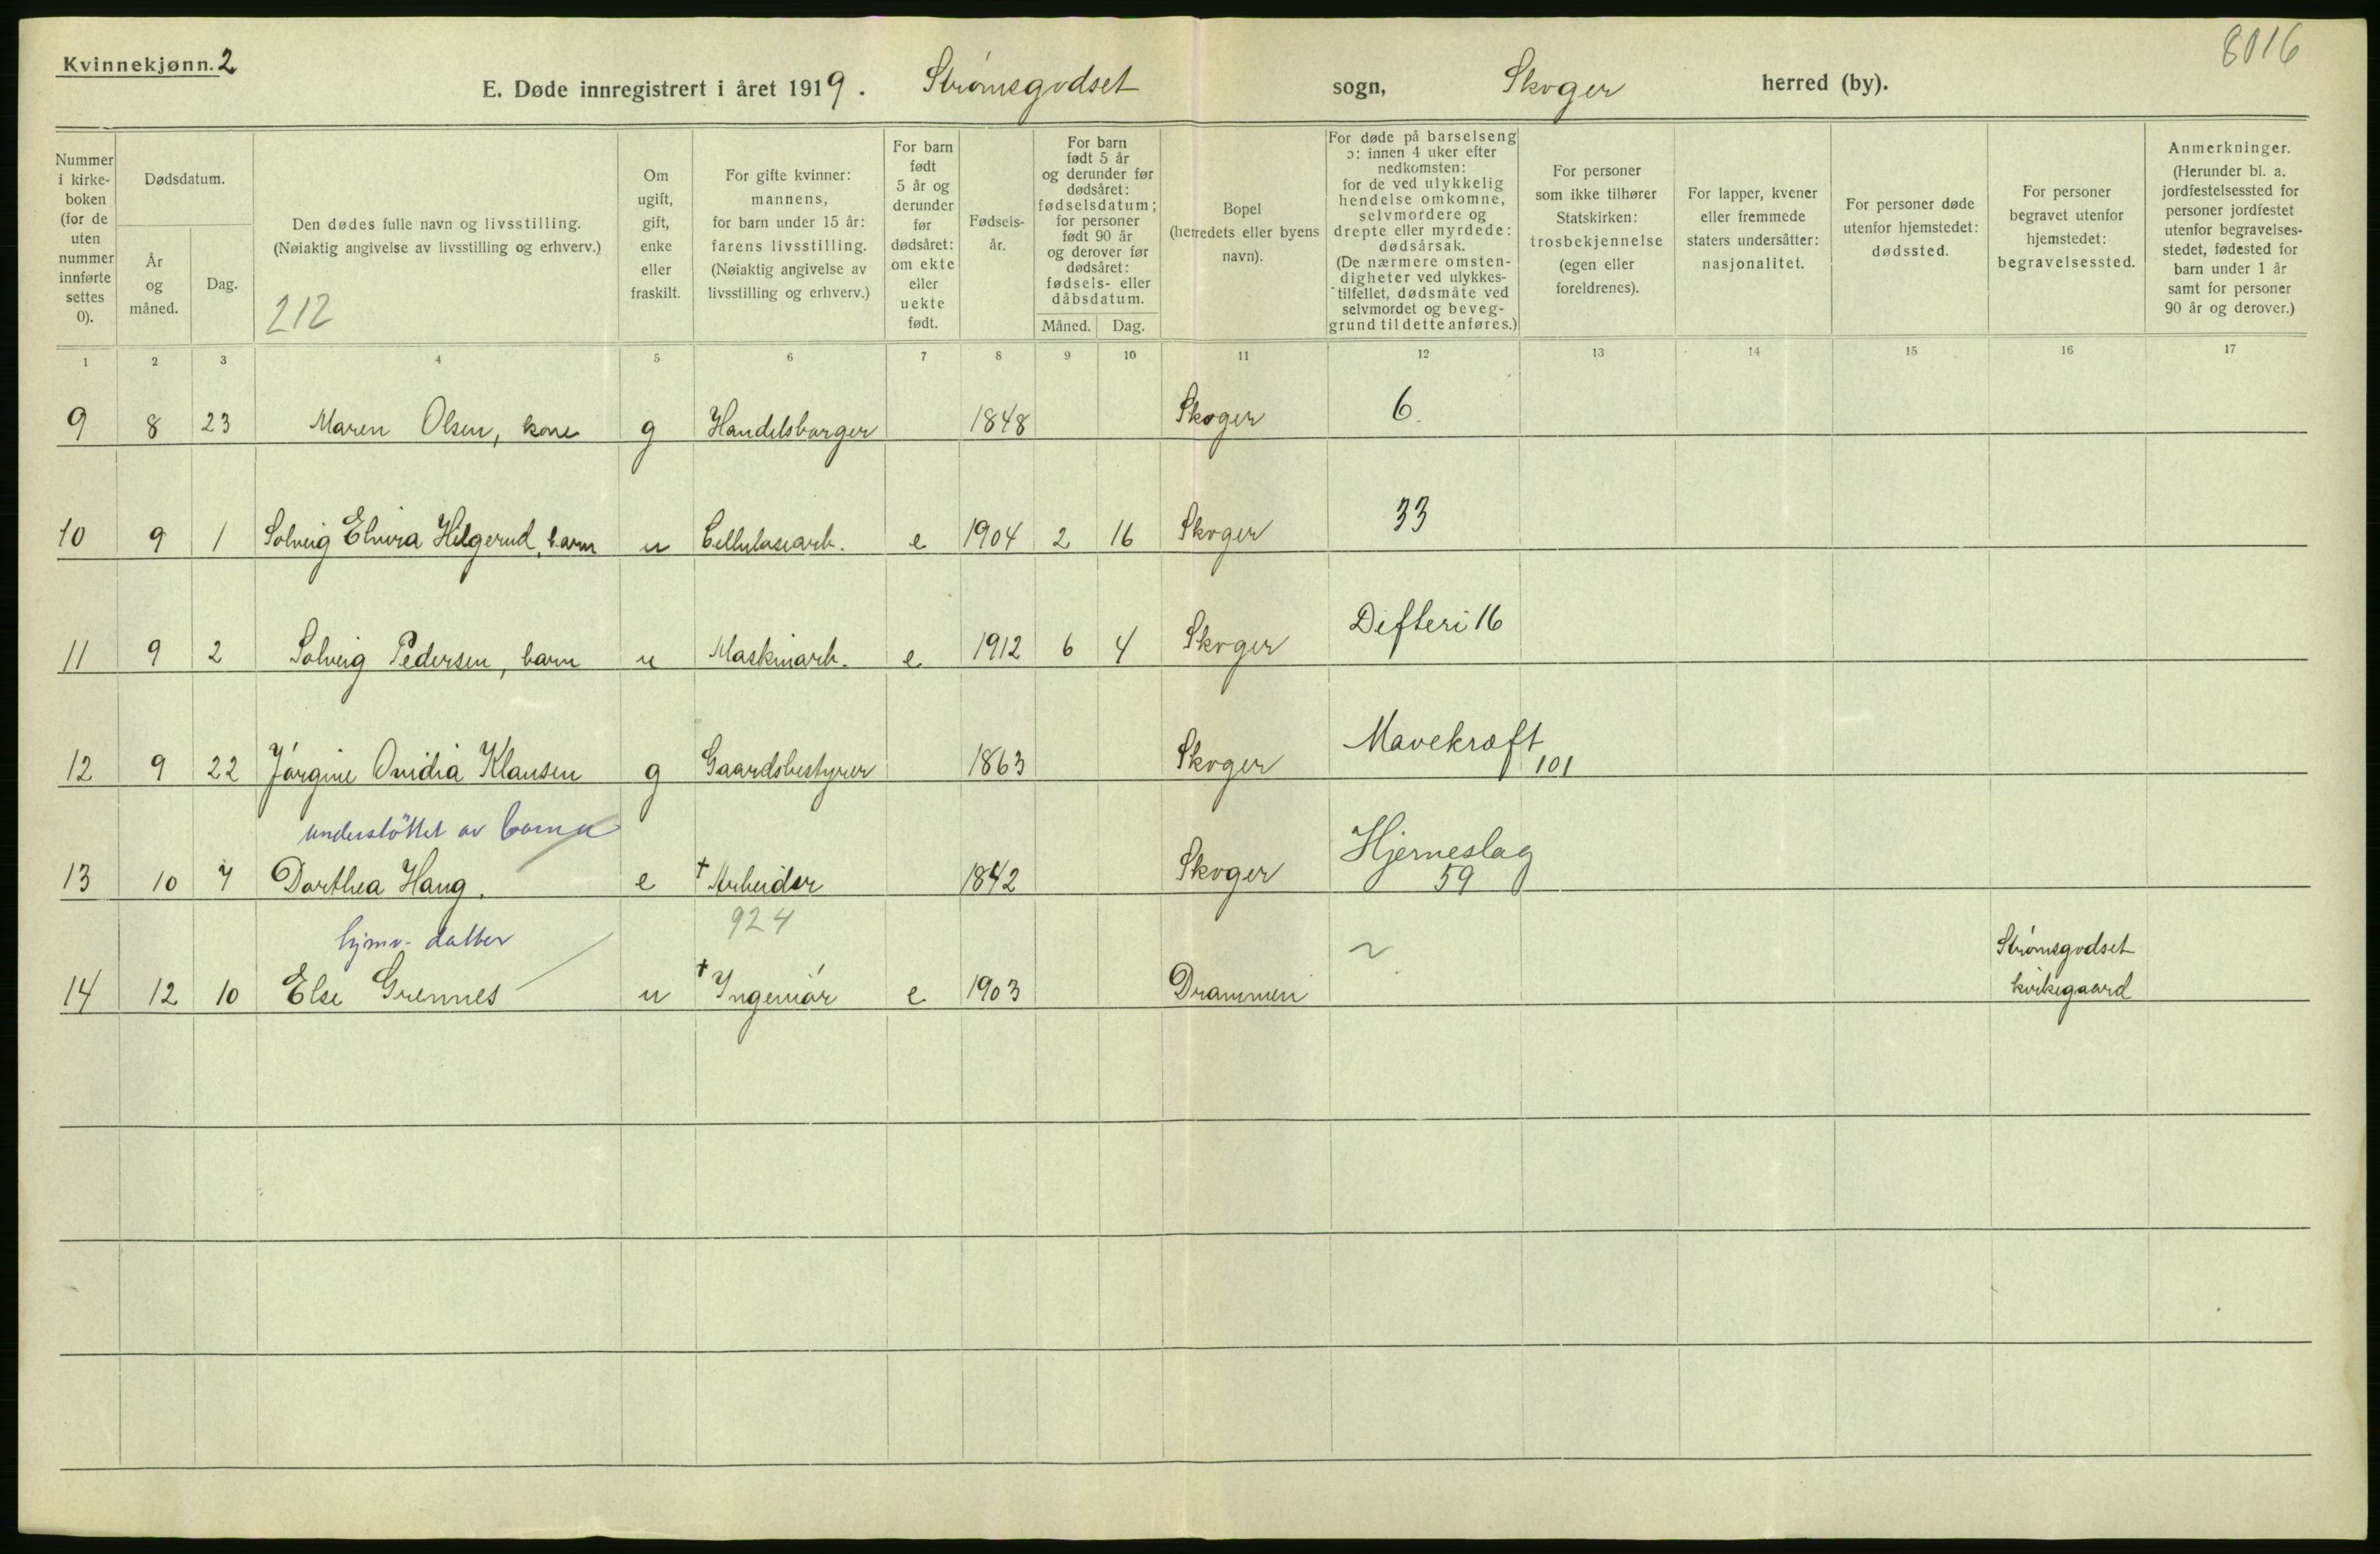 Kvinnekjønn. 2
8016
E. Døde innregistrert i året 1919. Strømsgodset sogn, Skoger herred (by).
Nummer i kirke- boken (for de uten nummer innførte settes 0).
Dødsdatum.
År og måned.
Dag.
Den dødes fulle navn og livsstilling.
(Nøiaktig angivelse av livsstilling og erhverv.)
212
Om ugift, gift, enke eller fraskilt.
For gifte kvinner: mannens, for barn under 15 år: farens livsstilling. (Nøiaktig angivelse av livsstilling og erhverv.)
For barn født 5 år og derunder før dødsåret: om ekte eller uekte født.
Fødsels- år.
For barn født 5 år og derunder før dødsåret: fødselsdatum; for personer født 90 år og derover før dødsåret: fødsels- eller dåbsdatum.
Måned. Dag.
Bopel (herredets eller byens navn).
For døde på barselseng ɔ: innen 4 uker efter nedkomsten: for de ved ulykkelig hendelse omkomne, selvmordere og drepte eller myrdede: dødsårsak. (De nærmere omsten- digheter ved ulykkes- tilfellet, dødsmåte ved selvmordet og beveg- grund til dette anføres.)
For personer som ikke tilhører Statskirken: trosbekjennelse (egen eller foreldrenes).
For lapper, kvener eller fremmede staters undersåtter: nasjonalitet.
For personer døde utenfor hjemstedet: dødssted.
For personer begravet utenfor hjemstedet: begravelsessted.
Anmerkninger. (Herunder bl. a. jordfestelsessted for personer jordfestet utenfor begravelses- stedet, fødested for barn under 1 år samt for personer 90 år og derover.)
1 2 3 4 5 6 7 8 9 10 11 12 13 14 15 16 17
9 8 23 Maren Olsen, kone g Handelsborger 1848 Skoger 6.
10 9 1 Solveig Elvira Hilgerud, barn u Cellulosearb. e 1904 2 16 Skoger 33
11 9 2 Solveig Pedersen, barn u Maskinarb. e 1912 6 4 Skoger Difteri 16
12 9 22 Jørgine Ovidia Klausen g Gaardsbestyrer 1863 Skoger Mavekræft 101
understöttet av barna
13 10 7 Dorthea Haug. e † Arbeider 1842 Skoger Hjerneslag 59
924
hjmv. datter
14 12 10 Else Grennes u † Ingeniør e 1903 Drammen ~ Strømsgodset kirkegaard